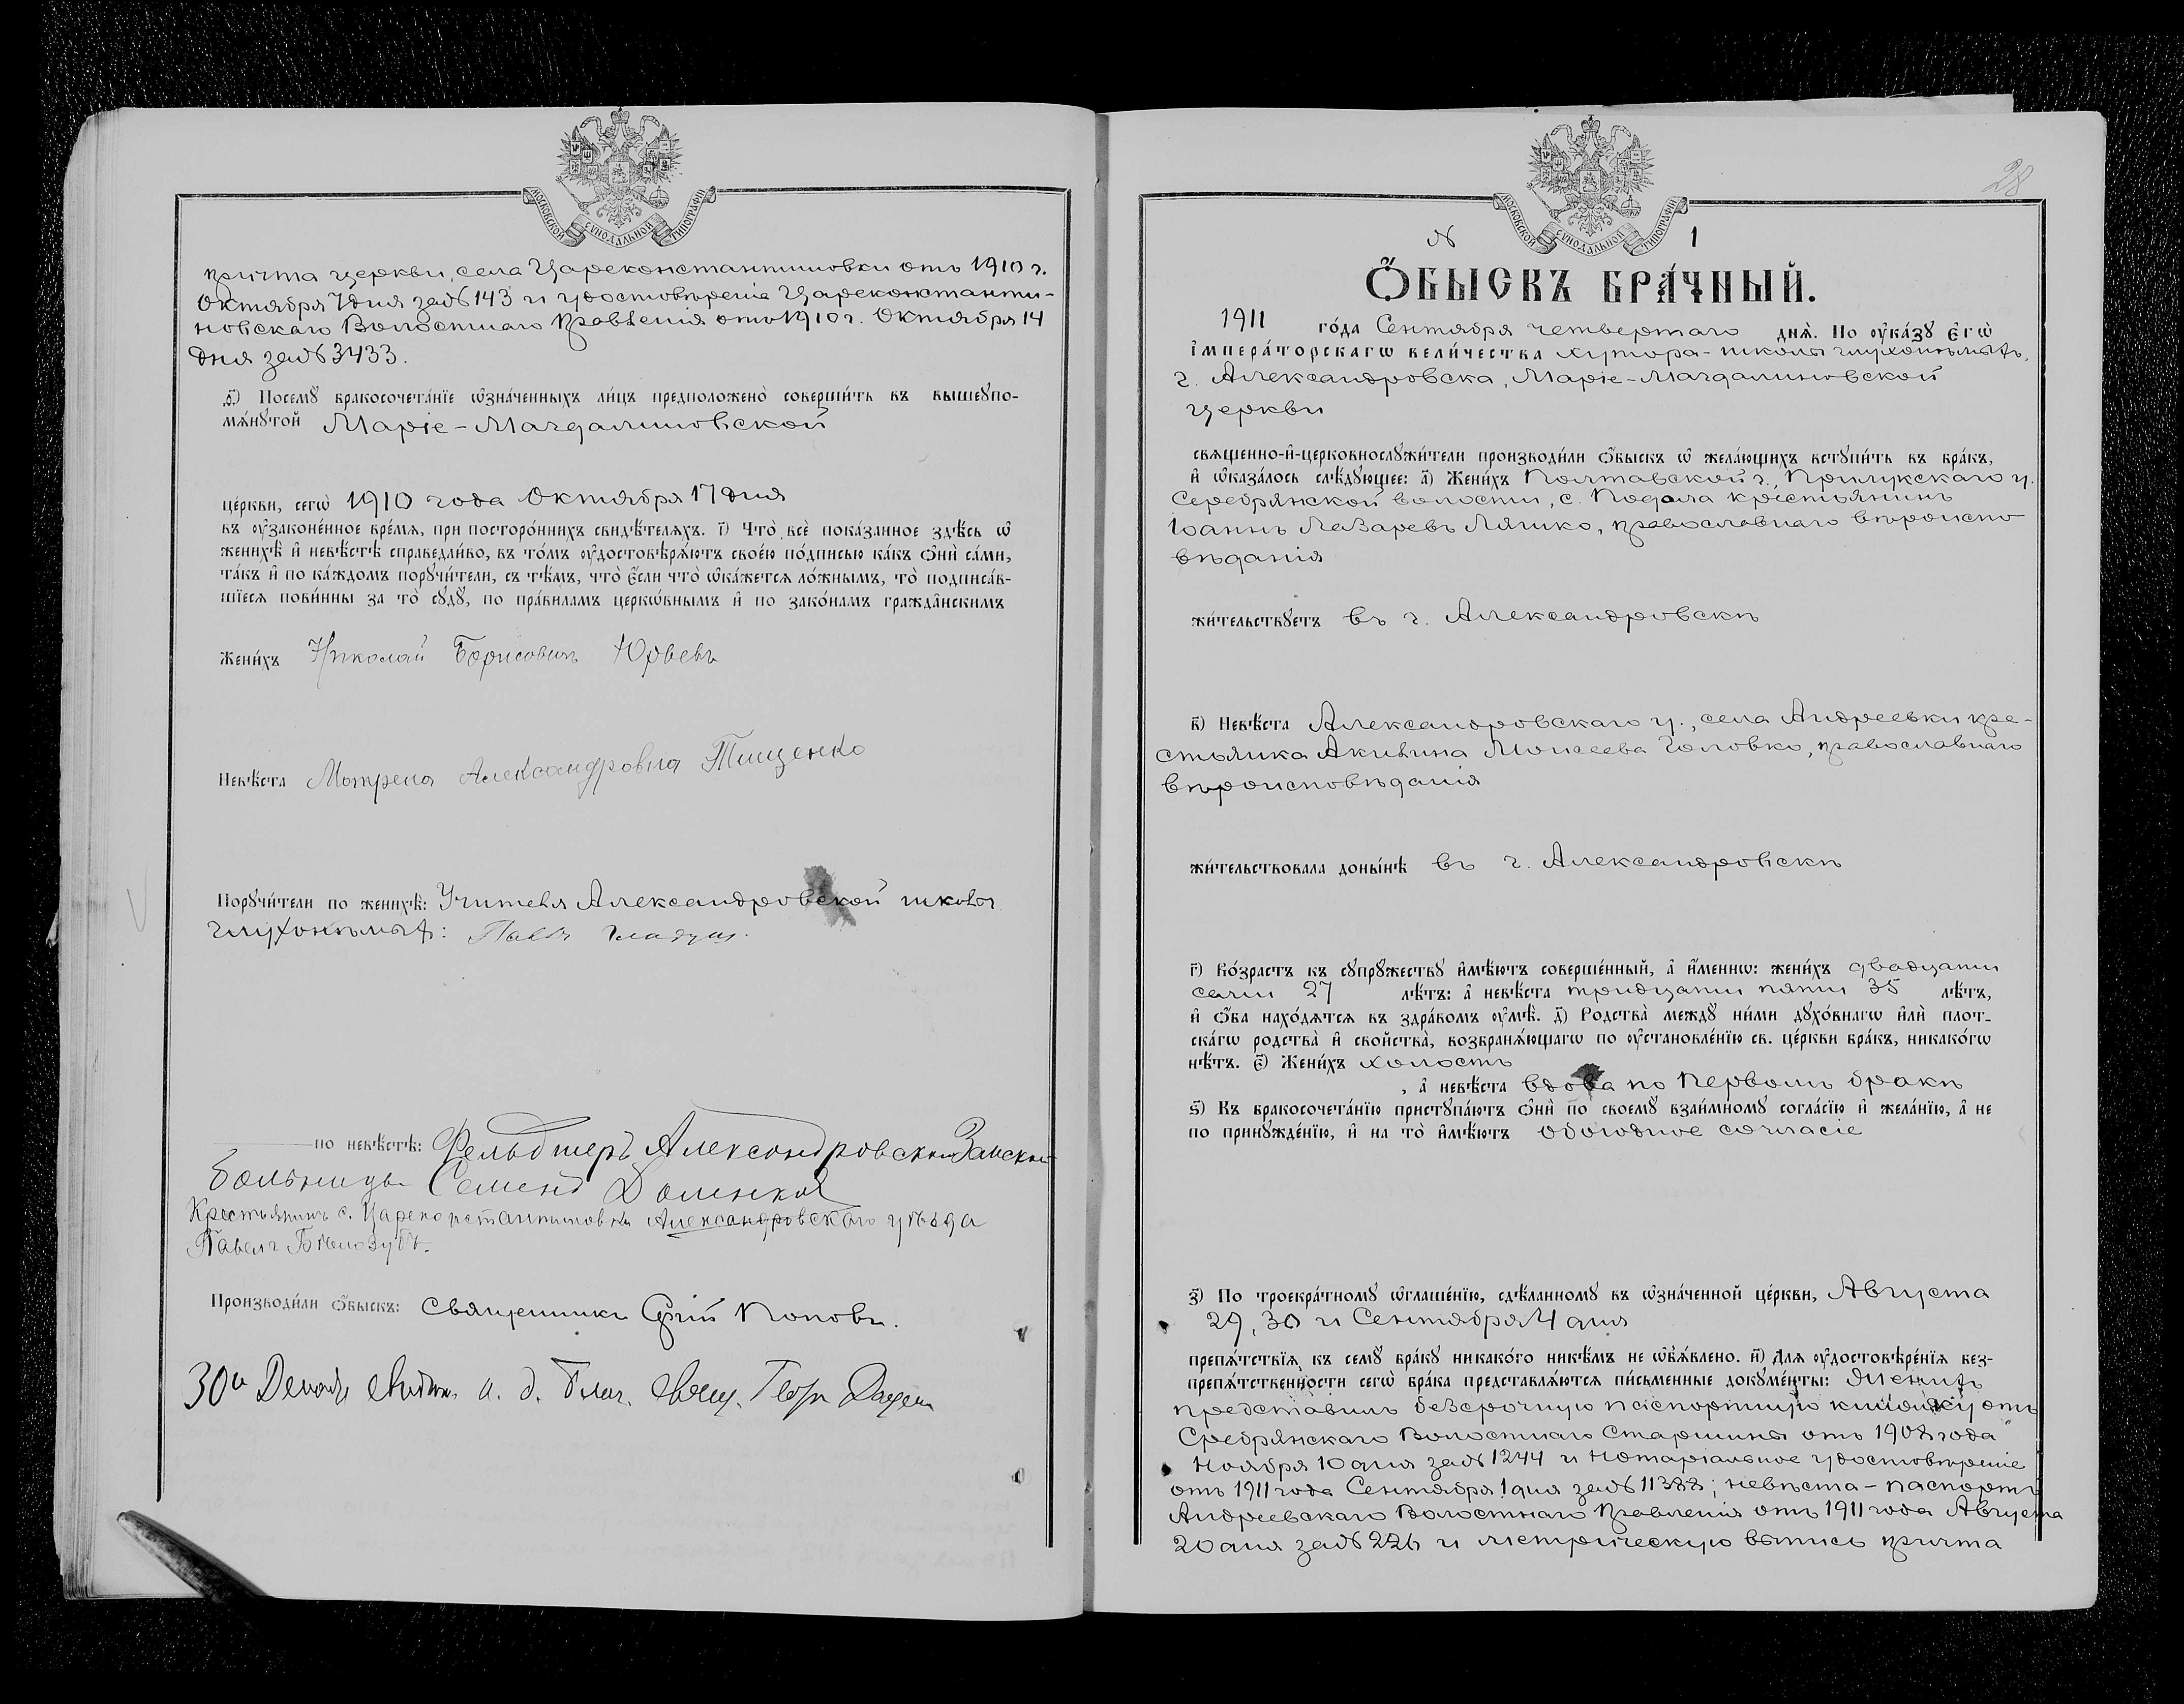 МОСКОВСКОЙ СѴНОДАЛЬНОЙ ТИПОГРАФІИ
причта церкви, села Цареконстантиновки отъ 1910 г.
Октября 7 дня за № 143 и удостовѣреніе Цареконстанти-
новскаго Волостнаго Правленія отъ 1910 г. Октября 14
дня за № 3433.
Посемꙋ бракосочета́нїе ѡзна́ченныхъ ли́цъ предположено̀ соверши́ть въ вышеꙋпо-
мѧ́нꙋтой Маріе-Магдалиновской
це́ркви, сегѡ̀ 1910 года Октября 17 дня
въ ᲂу҆законе́нное вре́мѧ, при посторо́ннихъ свидѣ́телѧхъ. г҃) Что̀ всѐ пока́занное здѣ́сь ѡ
женихѣ̀ и҆ невѣ́стѣ справедли́во, въ то́мъ ᲂу҆достовѣрѧ́ютъ свое́ю по́дписью ка́къ ѻ҆нѝ са́ми,
та́къ и҆ по ка́ждомъ порꙋчи́тели, съ тѣ́мъ, что̀ є҆́сли что̀ ѡ҆ка́жетсѧ ло́жнымъ, то̀ подписа́в-
шїесѧ пови́нны за то̀ сꙋдꙋ̀, по пра́виламъ церкѡ́внымъ и҆ по зако́намъ гражда̑нскимъ
Жени́хъ Николай Борисовичъ Юрьевъ
Невѣ́ста Мотрена Александровна Тищенко
Порꙋчи́тели по женихѣ̀: Учителя Александровской школы
глухонѣмыхъ: Павлъ
по невѣ́стѣ: Фельдшеръ Александровской Земской
больницы Семенъ
Крестьянинъ с. Цареконстантиновки Александровскаго уѣзда
Павелъ Бѣлозубъ.
Производи́ли ѻ҆́быскъ: Священникъ Сергій Поповъ.
30го и. д. благ. свящ.
28
МОСКОВСКОЙ СѴНОДАЛЬНОЙ ТИПОГРАФІИ
№ 1
Ѻ҆́БЫСКЪ БРА́ЧНЫЙ.
1911 го́да Сентября четвертаго днѧ̀. По ᲂу҆ка́зꙋ є҆гѡ̀
і҆мпера́торскагѡ вели́чества хутора-школы глухонѣмыхъ,
г. Александровска, Маріе-Магдалиновской
церкви
свѧщенно-и҆-церковнослꙋжи́тели производи́ли ѻ҆́быскъ ѡ҆ жела́ющихъ встꙋпи́ть въ бра́къ,
и҆ ѡ҆каза́лось слѣ́дꙋющее: а҃) Жени́хъ Полтавской г., Прилукскаго у.
Серебрянской волости, с. Подола крестьянинъ
Іоаннъ Лазаревъ Ляшко, православнаго вѣроиспо
вѣданія
жи́тельствꙋетъ въ г. Александровскѣ
в҃) Невѣ́ста Александровскаго у., села Андреевки кре-
стьянка Акилина Моисеева Головко, православнаго
вѣроисповѣданія
жи́тельствовала доны́нѣ въ г. Александровскѣ
г҃) Во́зрастъ къ сꙋпрꙋ́жествꙋ и҆мѣ́ютъ соверше́нный, а҆ и҆́менно: жени́хъ двадцати
семи 27 лѣ́тъ: а҆ невѣ́ста тридцати пяти 35 лѣ́тъ,
и҆ ѻ҆́ба нахо́дѧтсѧ въ здра́вомъ ᲂу҆мѣ̀. д҃) Родства̀ междꙋ̀ ни́ми дꙋхо́внагѡ и҆лѝ плот-
ска́гѡ родства̀ и҆ свойства̀, возбранѧ́ющагѡ по ᲂу҆становле́нїю св. це́ркви бра́къ, никако́гѡ
нѣ́тъ. є҃) Жени́хъ холостъ
, а҆ невѣ́ста вдова по первомъ бракѣ
ѕ҃) Къ бракосочета́нїю пристꙋпа́ютъ ѻ҆нѝ по своемꙋ̀ взаи́мномꙋ согла́сїю и҆ жела́нїю, а҆ не
по принꙋжде́нїю, и҆ на то̀ и҆мѣ́ютъ обоюдное согласіе
з҃) По троекра́тномꙋ ѡ҆глаше́нїю, сдѣ́ланномꙋ въ ѡ҆зна́ченной це́ркви, Августа
29, 30 и Сентября 4 дня
препѧ́тствїѧ къ семꙋ̀ бра́кꙋ никако́го никѣ́мъ не ѡ҆б̾ѧ́влено. и҃) Длѧ ᲂу҆достовѣре́нїѧ без-
препѧ́тственности сегѡ̀ бра́ка представлѧ́ютсѧ пи́сьменные докꙋме́нты: Женихъ
представилъ безсрочную паспортную книжку отъ
Сребрянскаго Волостнаго Старшины отъ 1908 года
Ноября 10 дня за № 1244 и нотаріальное удостовѣреніе
отъ 1911 года Сентября 1 дня за № 11388; невѣста - паспортъ
Андреевскаго Волостнаго Правленія отъ 1911 года Августа
20 дня за № 226 и метрическую выпись причта